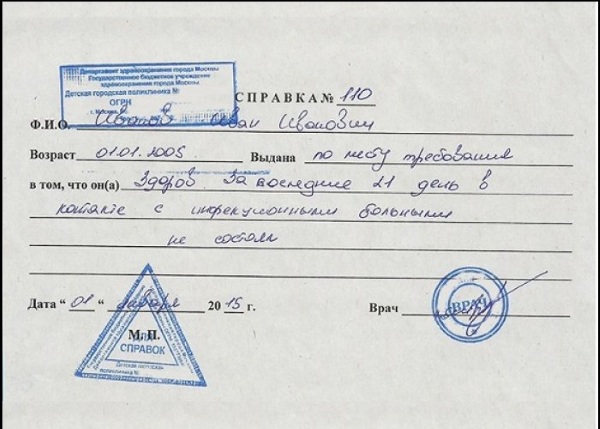 Департамент здравоохранения города Москвы
Государственное бюджетное учреждение
здравоохранения города Москвы
Детская городская поликлиника №
ОГРН
СПРАВКА № 110
Ф.И.О. Иванов Иван Иванович
Возраст 01.01.2005 Выдана по месту требования
в том, что он(а) Здоров. За последние 21 день в
контакте с инфекционными больными
не состоял
Дата “ 01 “ января 20 15 г. Врач
ВРАЧ
М. П.
ДЛЯ
СПРАВОК